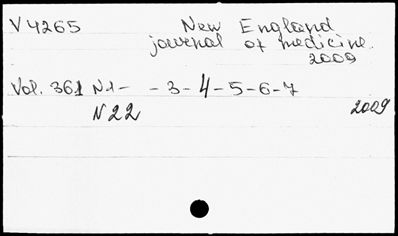 V4265 New England
journal of medicine.
2009
Vol. 361 N 1- - 3- 4-5-6-7
N 22 2009